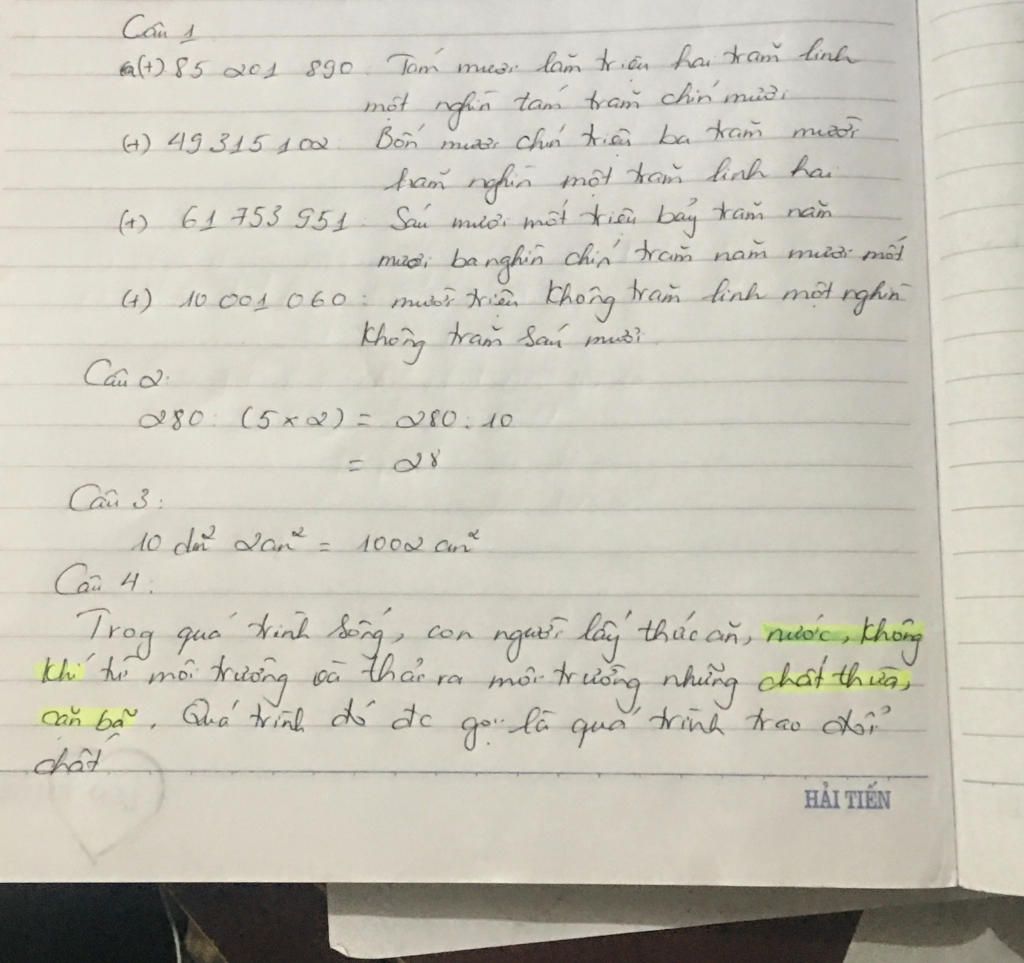 Câu 1
a(+) 85 201 890 : Tám mươi lăm triệu hai trăm linh
một nghìn tám trăm chín mươi
(+) 49 315 102 : Bốn mươi chín triệu ba trăm mười
lăm nghìn một trăm linh hai
(+) 61 753 951 : Sáu mươi mốt triệu bảy trăm năm
mươi ba nghìn chín trăm năm mươi mốt
(+) 10 001 060 : mười triệu không trăm linh một nghìn
không trăm sáu mươi.
Câu 2:
280 : (5 x 2) = 280 : 10
= 28
Câu 3:
10 dm² 2cm² = 1002 cm²
Câu 4:
Trog quá trình sống, con người lấy thức ăn, nước, không
khí từ môi trường và thải ra môi trường những chất thừa,
cặn bã. Quá trình đó đc gọi là quá trình trao đổi
chất
HẢI TIẾN